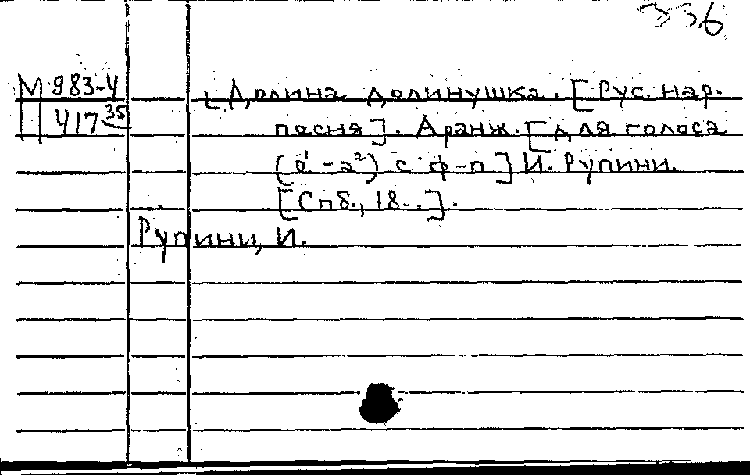 336
М 983-4
417 35
Долина долинушка. [Рус. нар.
песня]. Аранж. [для голоса
(d¹-a²) с ф-п] И. Рупини.
[Спб., 18..].
Рупини, И.